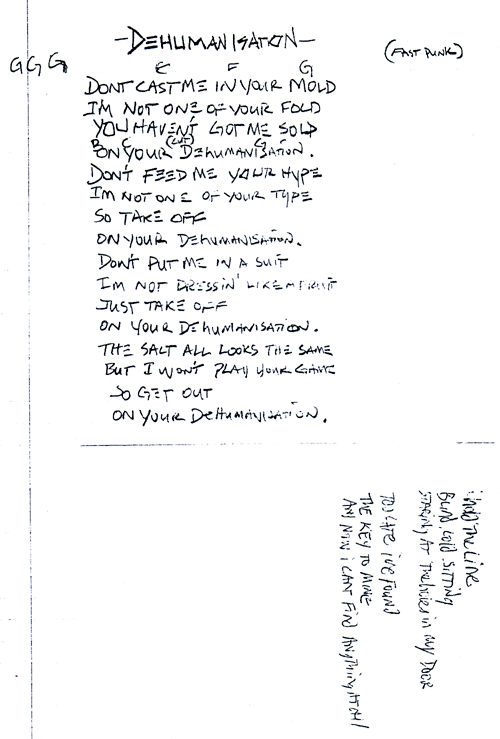 -DEHUMANISATION-
(FAST PUNK)
G G G
E F G
DONT CAST ME IN YOUR MOLD
I'M NOT ONE OF YOUR FOLD
YOU HAVEN'T GOT ME SOLD
B C (CUT) G
ON YOUR DEHUMANISATION.
DON'T FEED ME YOUR HYPE
I'M NOT ONE OF YOUR TYPE
SO TAKE OFF
ON YOUR DEHUMANISATION.
DON'T PUT ME IN A SUIT
I'M NOT DRESSIN' LIKE A FRUIT
JUST TAKE OFF
ON YOUR DEHUMANISATION.
THE SALT ALL LOOKS THE SAME
BUT I WON'T PLAY YOUR GAME
SO GET OUT
ON YOUR DEHUMANISATION.
THE LINE
BLIND COLD SITTING
STARING AT THE HOLES IN MY DOOR
TOO LATE I'VE FOUND
THE KEY TO MINE
AND NOW I CAN'T FIND ANYTHING AT ALL